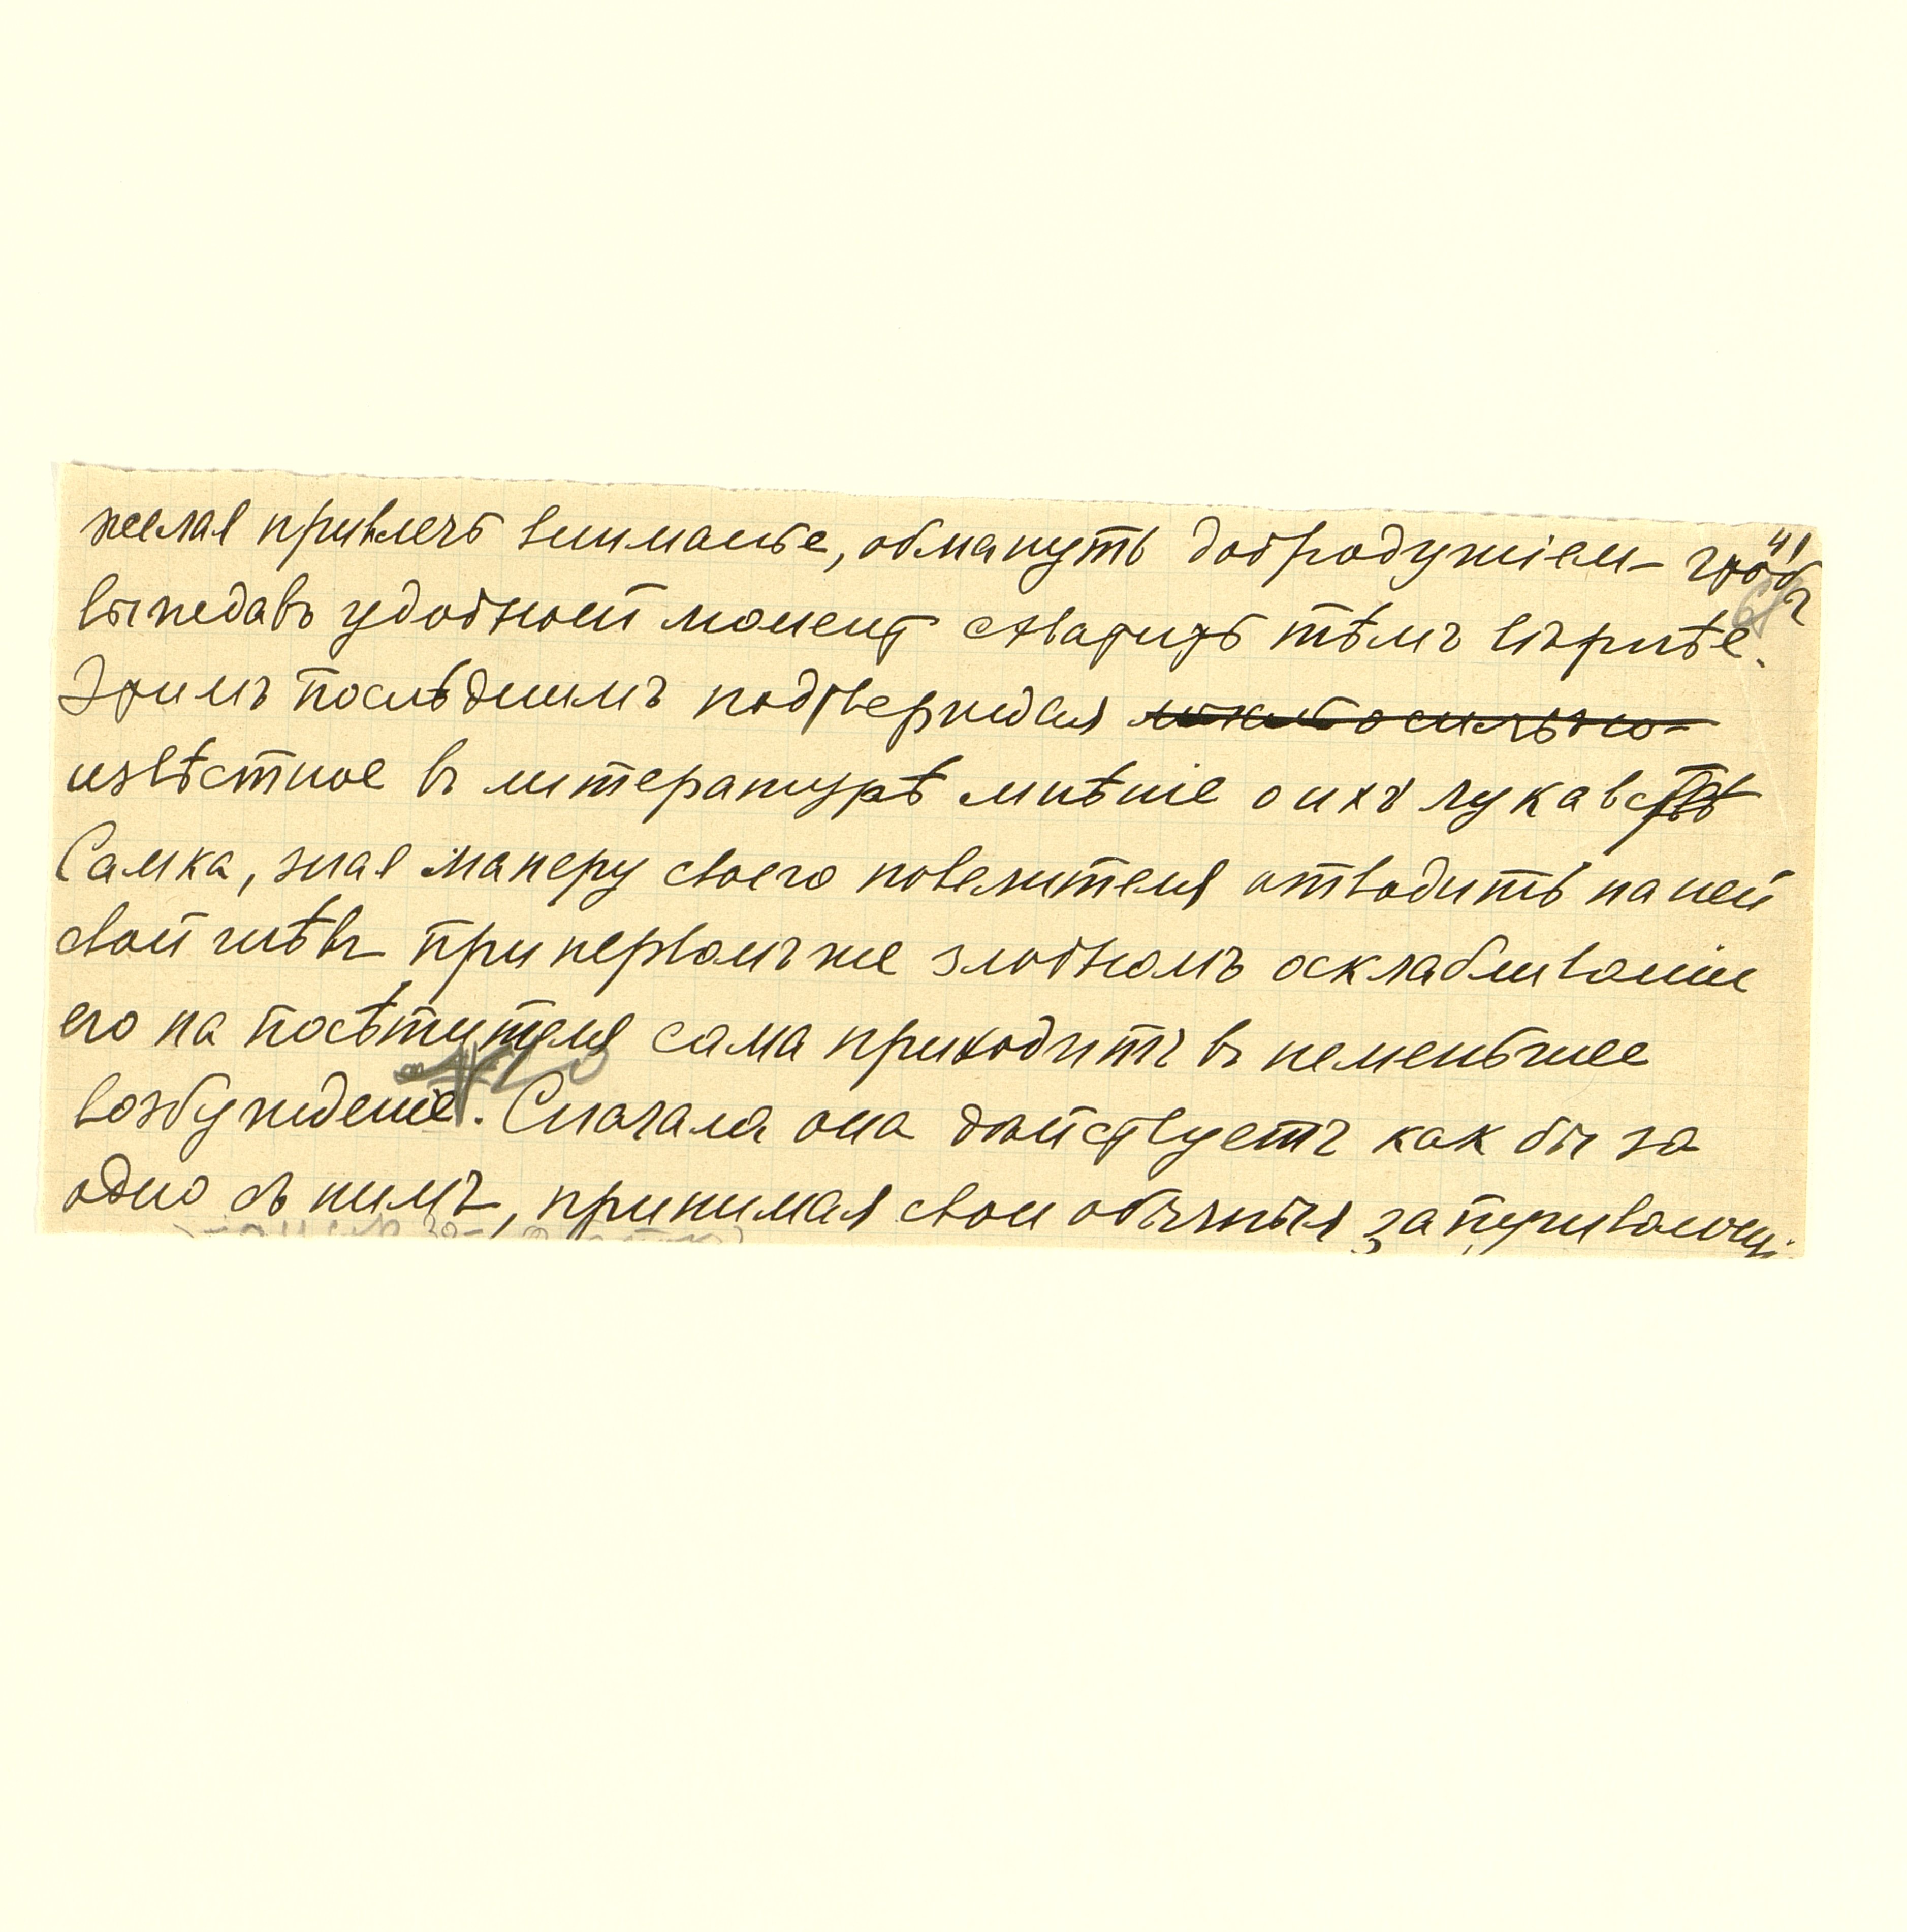 41
желая привлечь вниманье, обмануть добродушіем чтоб
выждавъ удобный момент схватить тѣмъ вѣрнѣе.
Этимъ послѣднимъ подтверждая
извѣстное въ литературѣ мнѣніе о ихъ лукавствѣ
Самка, зная манеру своего повелителя отводить на ней
свой гнѣвъ при первомъ же злобномъ оскабливаніи
его на посѣтителя сама приходитъ въ неменьшее
возбужденіе. Сначала она дѣйствуетъ как бы за
одно съ нимъ, принимая свои обычныя запугивающі